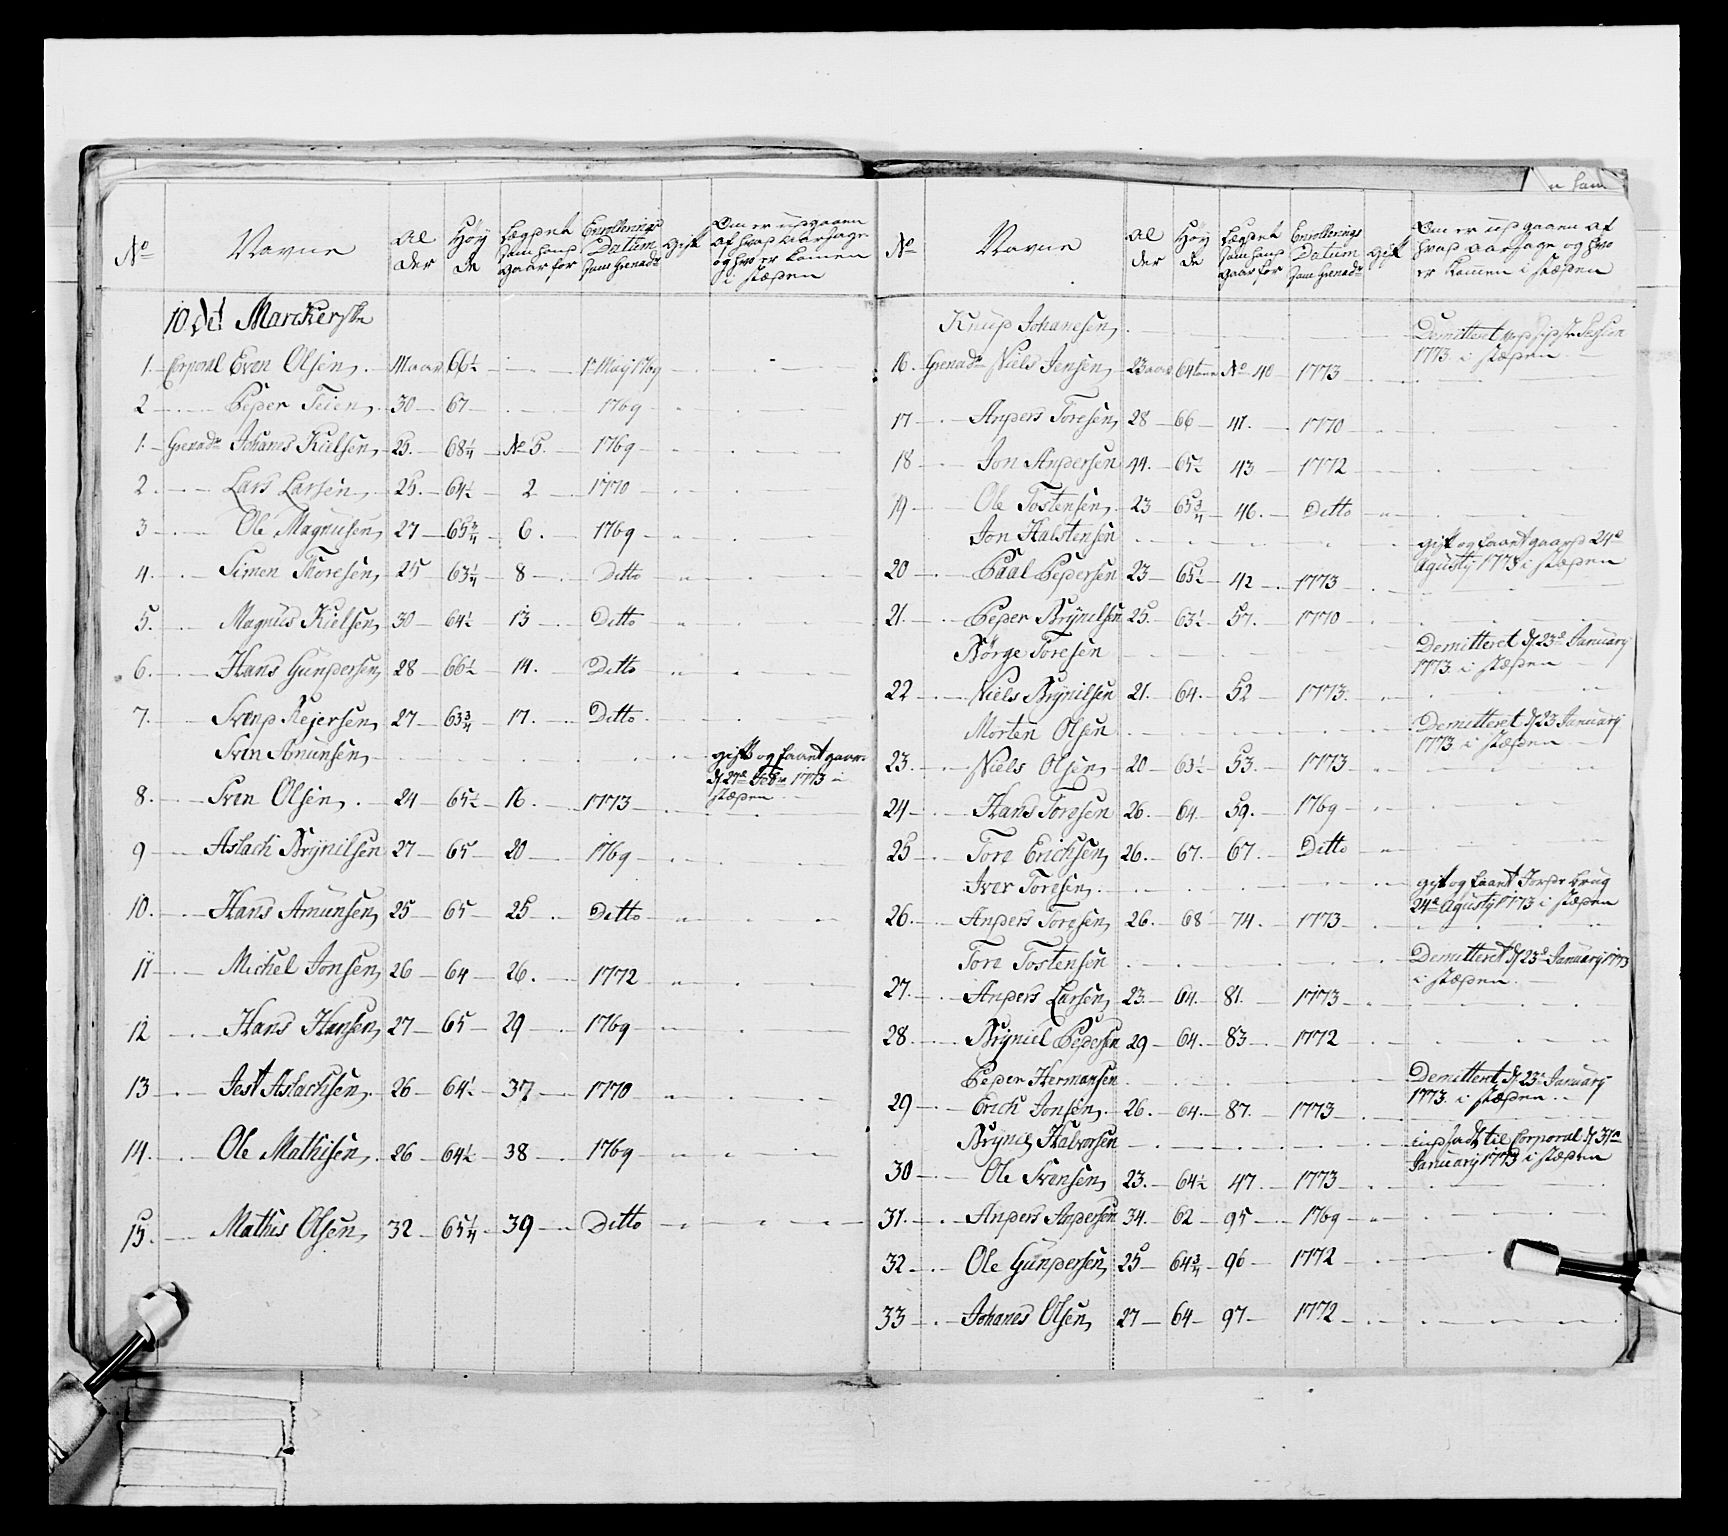 No Navne Al der Høy de Lægdet som hand gaar for Enrollerings Datum som Grenadr Gift Om er udgaaen af hvad Aarsage og hvo er komen i stæden
10de Marckerske
1. Corporal Even Olsen 41 aar 66½ 1te Maij 1769
2 Peder Teien 30 67 1769
1. Grenadr Johanes Kielsen 25. 68¼ No 5. 1769
2. Lars Larsen 25. 64½ 2 1770
3 Ole Magnusen 27 65¾ 6. 1769
4. Simen Thoresen 25 63¼ 8 Ditto
5. Magnus Kielsen 30 64½ 13 Ditto
6. Hans Gundersen 28 66½ 14. Ditto
7. Svend Rejersen 27 63¾ 17. Ditto
Sven Amunsen gift og faaet gaard d 27de Febr 1773 i stæden
8. Sven Olsen 24 65½ 16. 1773
9 Aslach Brynilsen 27 65 20 1769
10. Hans Amunsen 25 65 25 Ditto
11 Michel Jonsen 26 64 26. 1772
12 Hans Hansen 27 65 29 1769
13 Jest Aslachsen 26 64½ 37 1770
14. Ole Mathisen 26 64½ 38 1769
15. Mathis Olsen 32 65¼ 39 Ditto
No Navne Al der Høy de Lægdet som hand gaar for Enrollerings Datum som Grenadr Gift Om er udgaaen af hvad Aarsage og hvo er komen i stæden
Knud Johanesen Demitteret ved sidste Session 1773 i stæden
16. Grenadr Niels Jensen 23 aar 64 tome No 40 1773
17 Anders Toresen 28 66 41. 1770
18 Jon Andersen 44. 65½ 43 1772
19 Ole Tostensen 23 65¾ 46. Ditto
Jon Halstensen gift og faaet gaard 24de Agustij 1773 i stæden
20 Paal Pedersen 23 65½ 42 1773
21. Peder Brynilsen 25. 63½ 57. 1770
Børge Toresen Demitteret d 23de Januarij 1773 i stæden
22 Niels Brynilsen 21. 64. 52 1773.
Morten Olsen Demitteret d 23 Januarij 1773 i stæden
23. Niels Olsen 20 63½ 53. 1773
24 Hans Toresen 26. 64 59. 1769
25 Tore Erichsen 26. 67. 67. Ditto
Iver Toresen gift og faaet Jorder brug 24de Agustij 1773 i stæden
26. Anders Toresen 26. 68 74. 1773
Tore Tostensen Demitteret d 23de Januarij 1773 i stæden
27. Anders Larsen 23. 64. 81. 1773
28. Bryniel Pedersen 29 64. 83 1772
Peder Hermansen Demitteret d 23de Januarij 1773 i stæden
29 Erich Jonsen 26. 64. 87. 1773
Bryniel Halvorsen udsadt til Corporal d 31te Januarij 1773 i stæden
30 Ole Svensen 23. 64½ 47 1773
31. Anders Andersen 34. 62 95 1769
32 Ole Gundersen 25 64¾ 96 1772
33 Johanes Olsen 27 64 97 1772